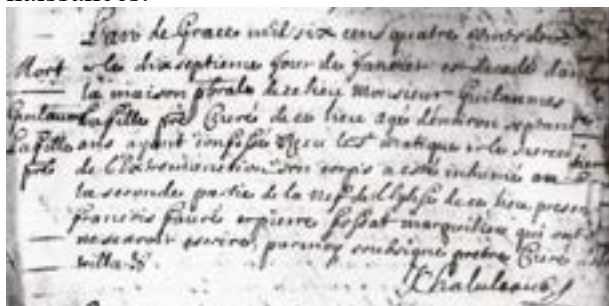 L'an de Grace mil six cens quatre vints dou
Mort
et le dix septieme jour de Janvier est decedé dans
la maison pbrale de ce lieu Monsieur Guilaumes
Guilaume
Lafille pbre Curé de ce lieu agé denviron septant
Lafille
ans ayant confessé receu le et le sacrem
pbre
de l'extremonction son corps a esté inhumé au
la seconde partie de la nef de l'Eglise de ce lieu presen
francois faure et pierre fossat marguilier qui ont
ne scavoir escrire, par moy soubsigné prebtre Curé
villa
Chaluleau